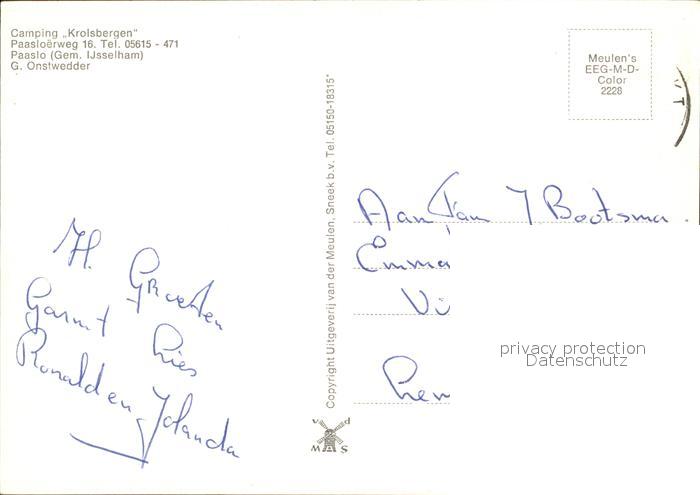 Camping „Krolsbergen"
Paasloërweg 16. Tel. 05615 - 471
Paaslo (Gem. IJsselham)
G. Onstwedder
Meulen's
EEG-M-D-
Color
2228
Copyright Uitgeverij van der Meulen, Sneek b.v. Tel. 05150-18315*
H. Groeten
Garmt Lies
Ronald en Jolanda
Aan Fam Y Bootsma.
Emma
privacy protection
Datenschutz
v d
MAS